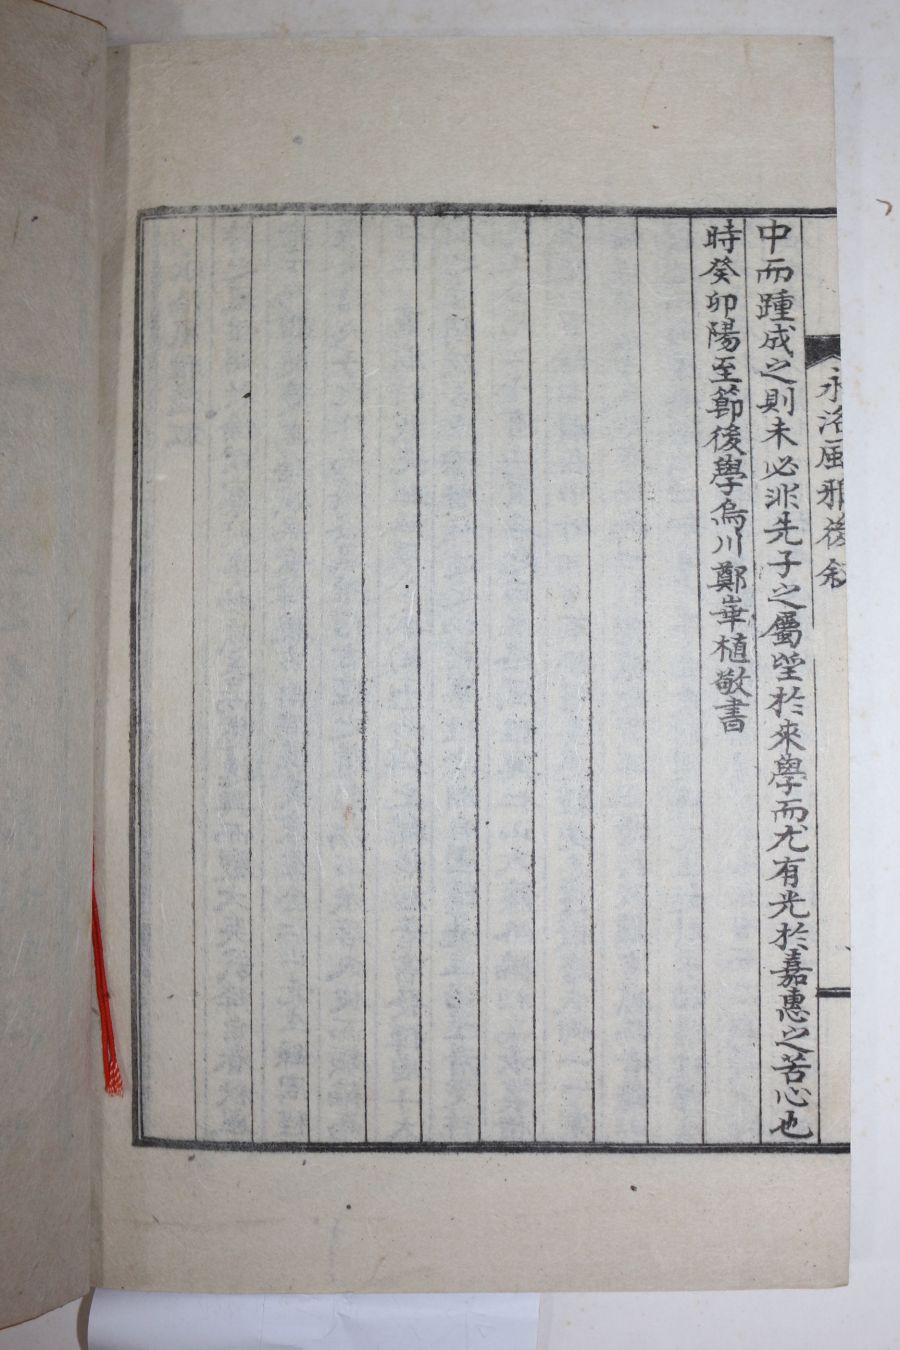 永洛風雅後叙
中而踵成之則未必非先子之屬望於來學而尤有光於嘉惠之苦心也
時癸卯陽至節後學烏川鄭崋植敬書